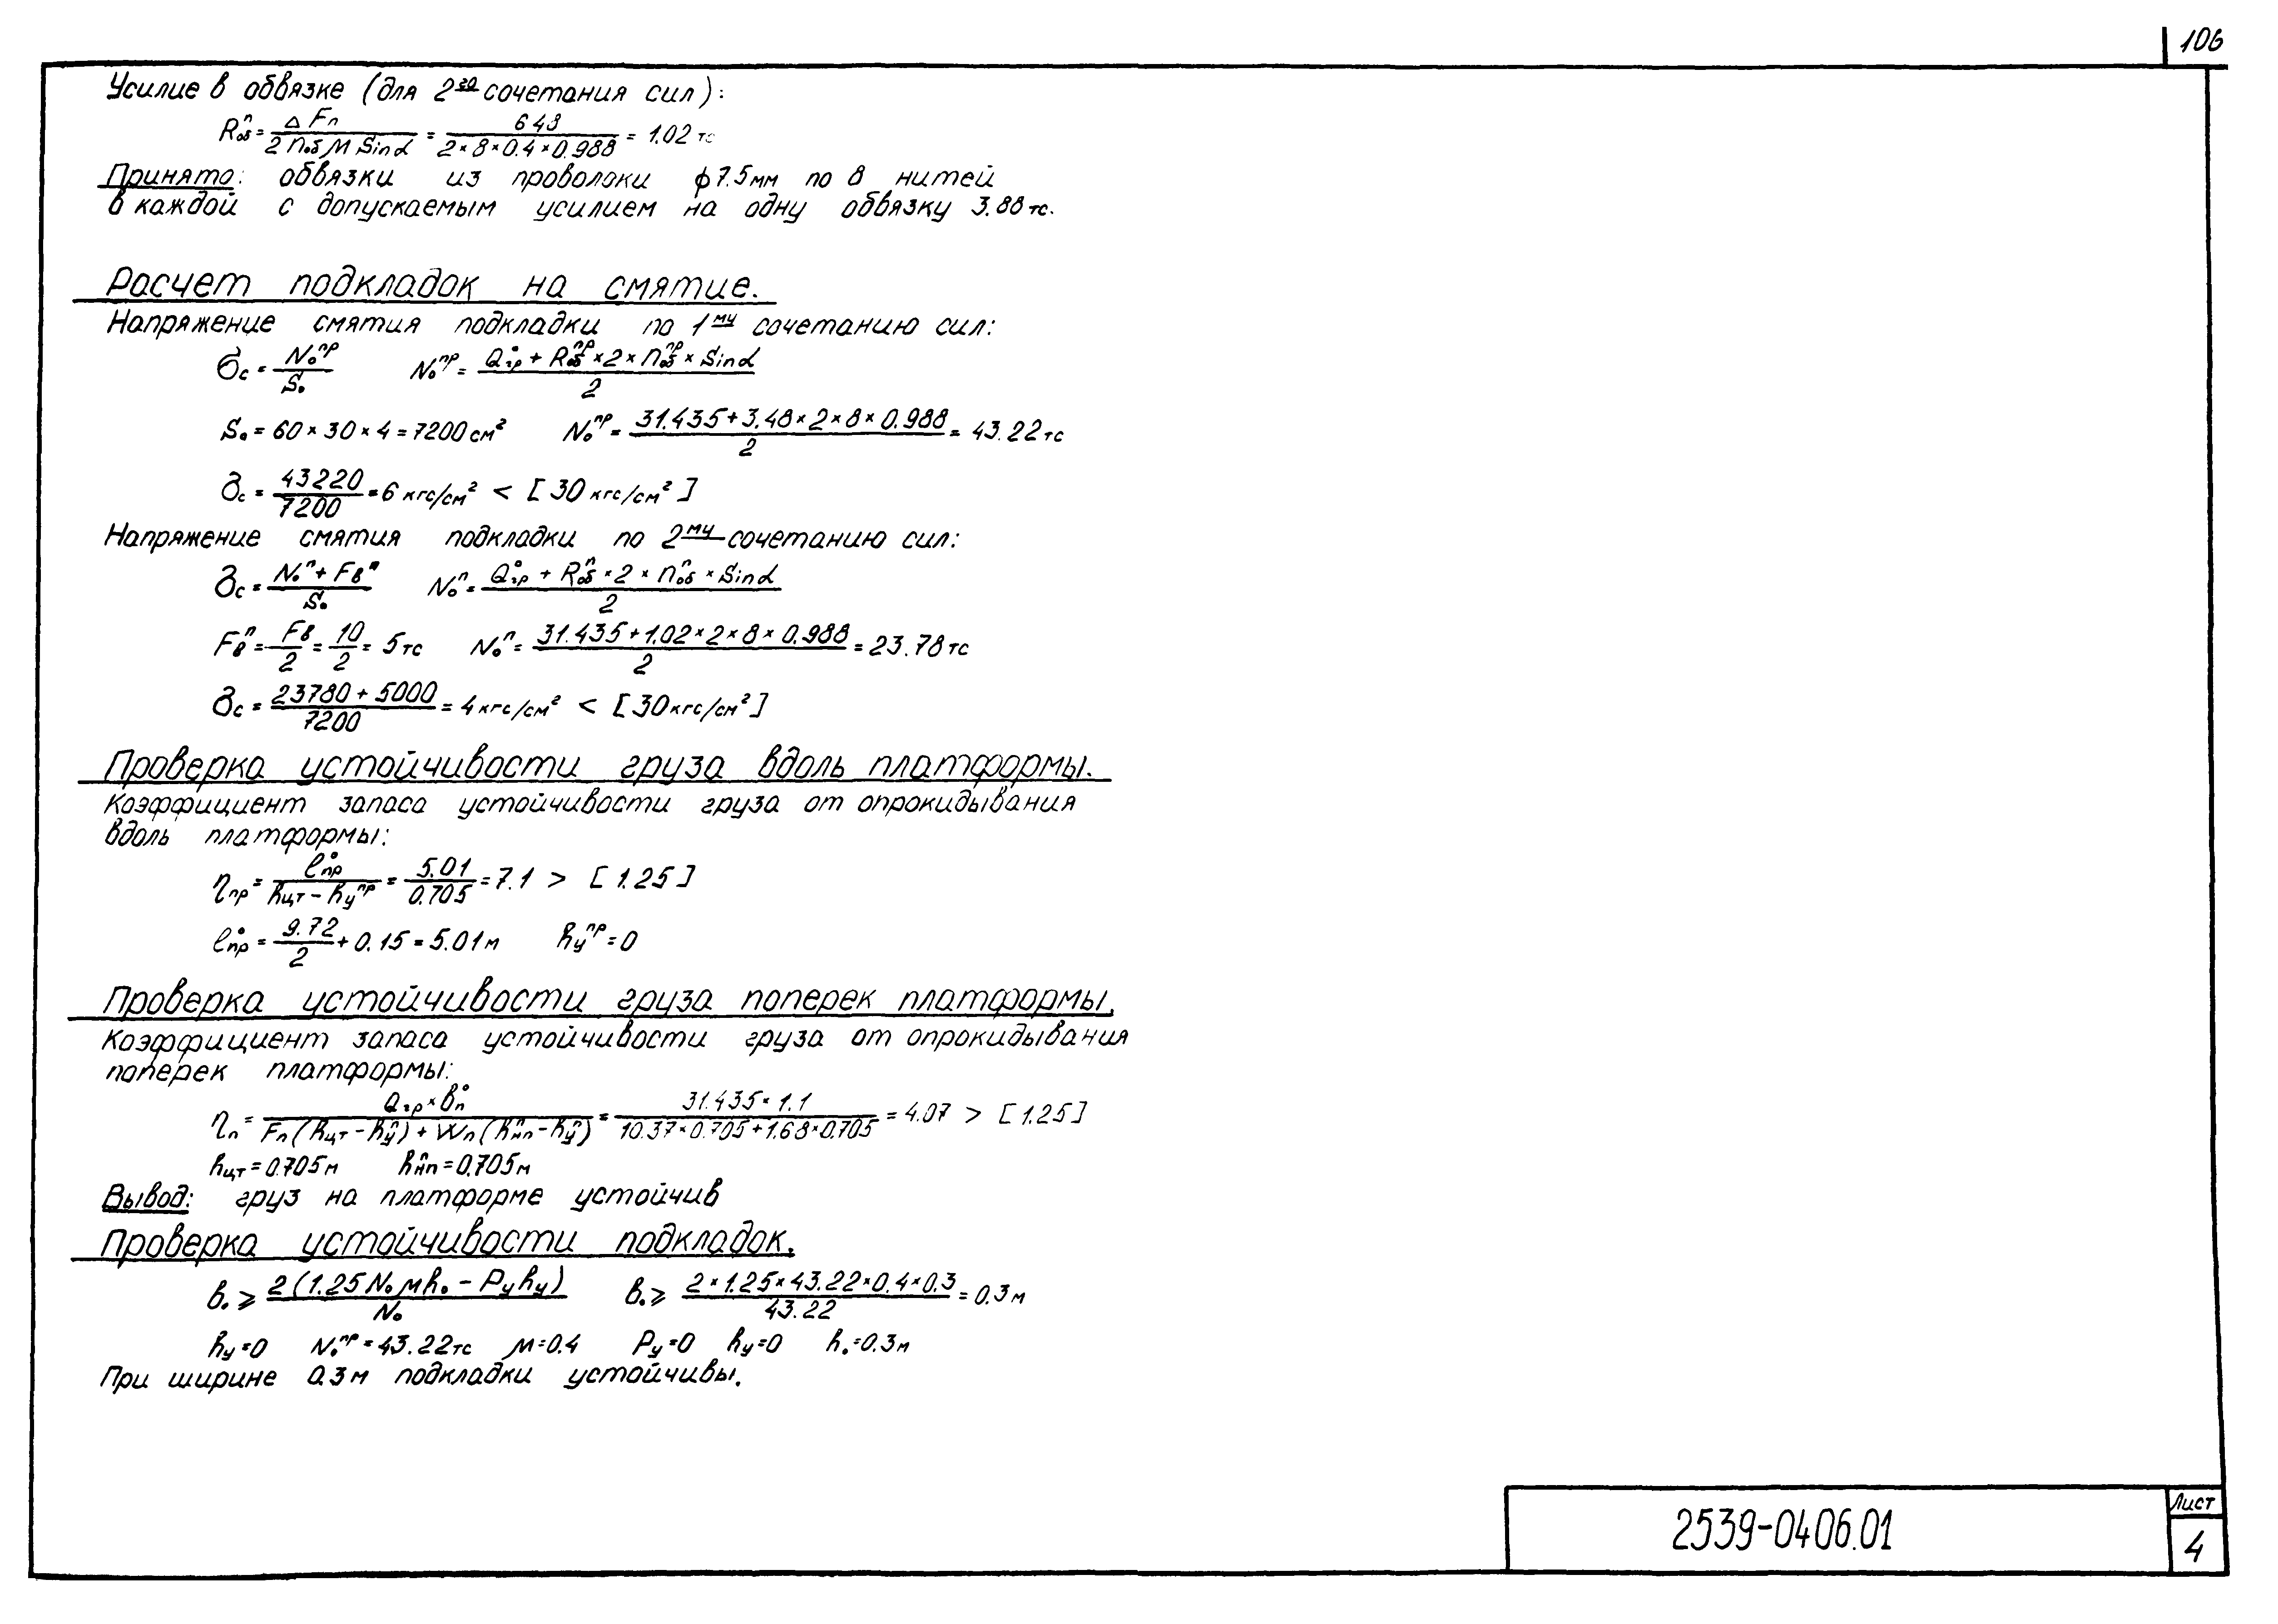 106
Усилие в обвязке (для 2го сочетания сил):
Rобⁿ = ΔFп / 2 nоб μ Sin α = 6.48 / 2×8×0.4×0.988 = 1.02 тс
Принято: обвязки из проволоки ф7.5мм по 8 нитей
в каждой с допускаемым усилием на одну обвязку 3.88 тс.
Расчет подкладок на смятие.
Напряжение смятия подкладки по 1му сочетанию сил:
σс = N₀ᵖᵖ / S₀    N₀ᵖᵖ = Q°гр + Rобᵖᵖ × 2 × nобᵖᵖ × Sin α / 2
S₀ = 60 × 30 × 4 = 7200 см²    N₀ᵖᵖ = 31.435 + 3.48 × 2 × 8 × 0.988 / 2 = 43.22 тс
σс = 43220 / 7200 = 6 кгс/см² < [30 кгс/см²]
Напряжение смятия подкладки по 2му сочетанию сил:
σс = N₀ⁿ + Fвⁿ / S₀    N₀ⁿ = Q°гр + Rобⁿ × 2 × nобⁿ × Sin α / 2
Fвⁿ = Fв / 2 = 10 / 2 = 5 тс    N₀ⁿ = 31.435 + 1.02 × 2 × 8 × 0.988 / 2 = 23.78 тс
σс = 23780 + 5000 / 7200 = 4 кгс/см² < [30 кгс/см²]
Проверка устойчивости груза вдоль платформы.
Коэффициент запаса устойчивости груза от опрокидывания
вдоль платформы:
ηпр = ℓ°пр / hцт - hуᵖᵖ = 5.01 / 0.705 = 7.1 > [1.25]
ℓ°пр = 9.72 / 2 + 0.15 = 5.01 м    hуᵖᵖ = 0
Проверка устойчивости груза поперек платформы.
Коэффициент запаса устойчивости груза от опрокидывания
поперек платформы:
ηп = Qгр × b°п / Fп (hцт - hуⁿ) + Wп (hнпⁿ - hуⁿ) = 31.435 × 1.1 / 10.37 × 0.705 + 1.68 × 0.705 = 4.07 > [1.25]
hцт = 0.705 м    hнпⁿ = 0.705 м
Вывод: груз на платформе устойчив
Проверка устойчивости подкладок.
b₀ ≥ 2 (1.25 N₀ μ h₀ - Pу hу) / N₀    b₀ ≥ 2 × 1.25 × 43.22 × 0.4 × 0.3 / 43.22 = 0.3 м
hу = 0    N₀ᵖᵖ = 43.22 тс    μ = 0.4    Pу = 0    hу = 0    h₀ = 0.3 м
При ширине 0.3 м подкладки устойчивы.
2539-0406.01
Лист
4